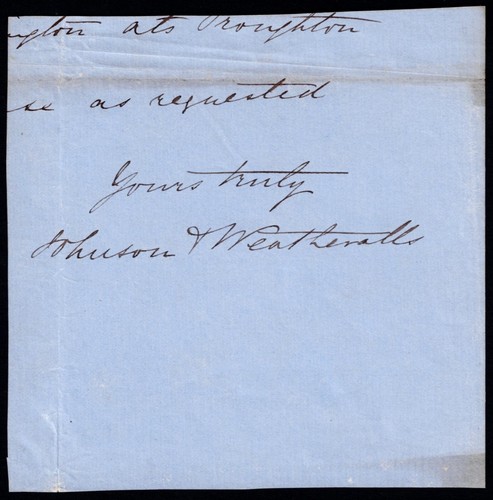 ngton ats Proughton
ss as requested
Yours truly
Johnson & Weatheralls